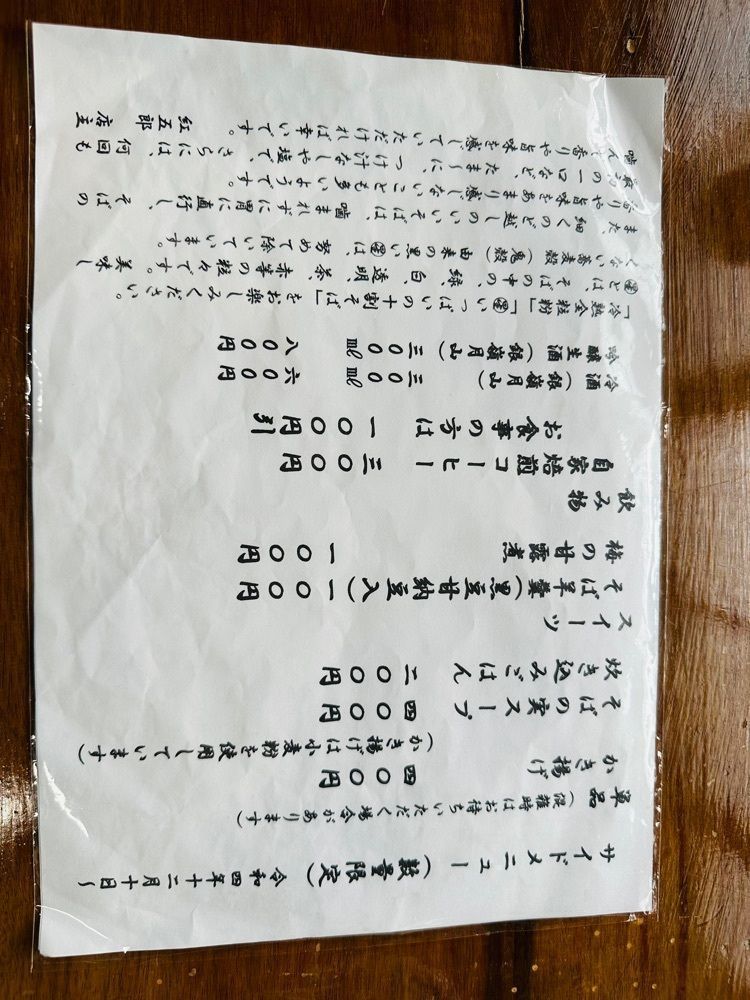 サイドメニュー（数量限定）令和四年十二月十日〜
単品（混雑時はお待ちいただく場合があります）
かき揚げ　四〇〇円
（かき揚げは小麦粉を使用しています）
そばの実スープ　四〇〇円
炊き込みごはん　二〇〇円
スイーツ
そば羊羹（黒豆甘納豆入）一〇〇円
梅の甘露煮　一〇〇円
飲み物
自家焙煎コーヒー　三〇〇円
お食事の方は　一〇〇円引
冷酒（銀嶺月山）三〇〇㎖　六〇〇円
吟醸生酒（銀嶺月山）三〇〇㎖　八〇〇円
「冷熟全粒粉」「星いっぱいの十割そば」をお楽しみください。
星とは、そばの中の、緑、白、透明、茶、赤等の粒々です。美味し
くない蕎麦殻（鬼殻）由来の黒い星は、努めて除いています。
また、細くのど越しのいいそばは、噛まれずに胃に直行し、そばの
香りや旨味をあまり感じないことも多いようです。
最初の一口など、たまに、つけ汁なしや塩で、さらには、何回も
噛んで香りや旨味を感じていただければ幸いです。　紅五郎　店主